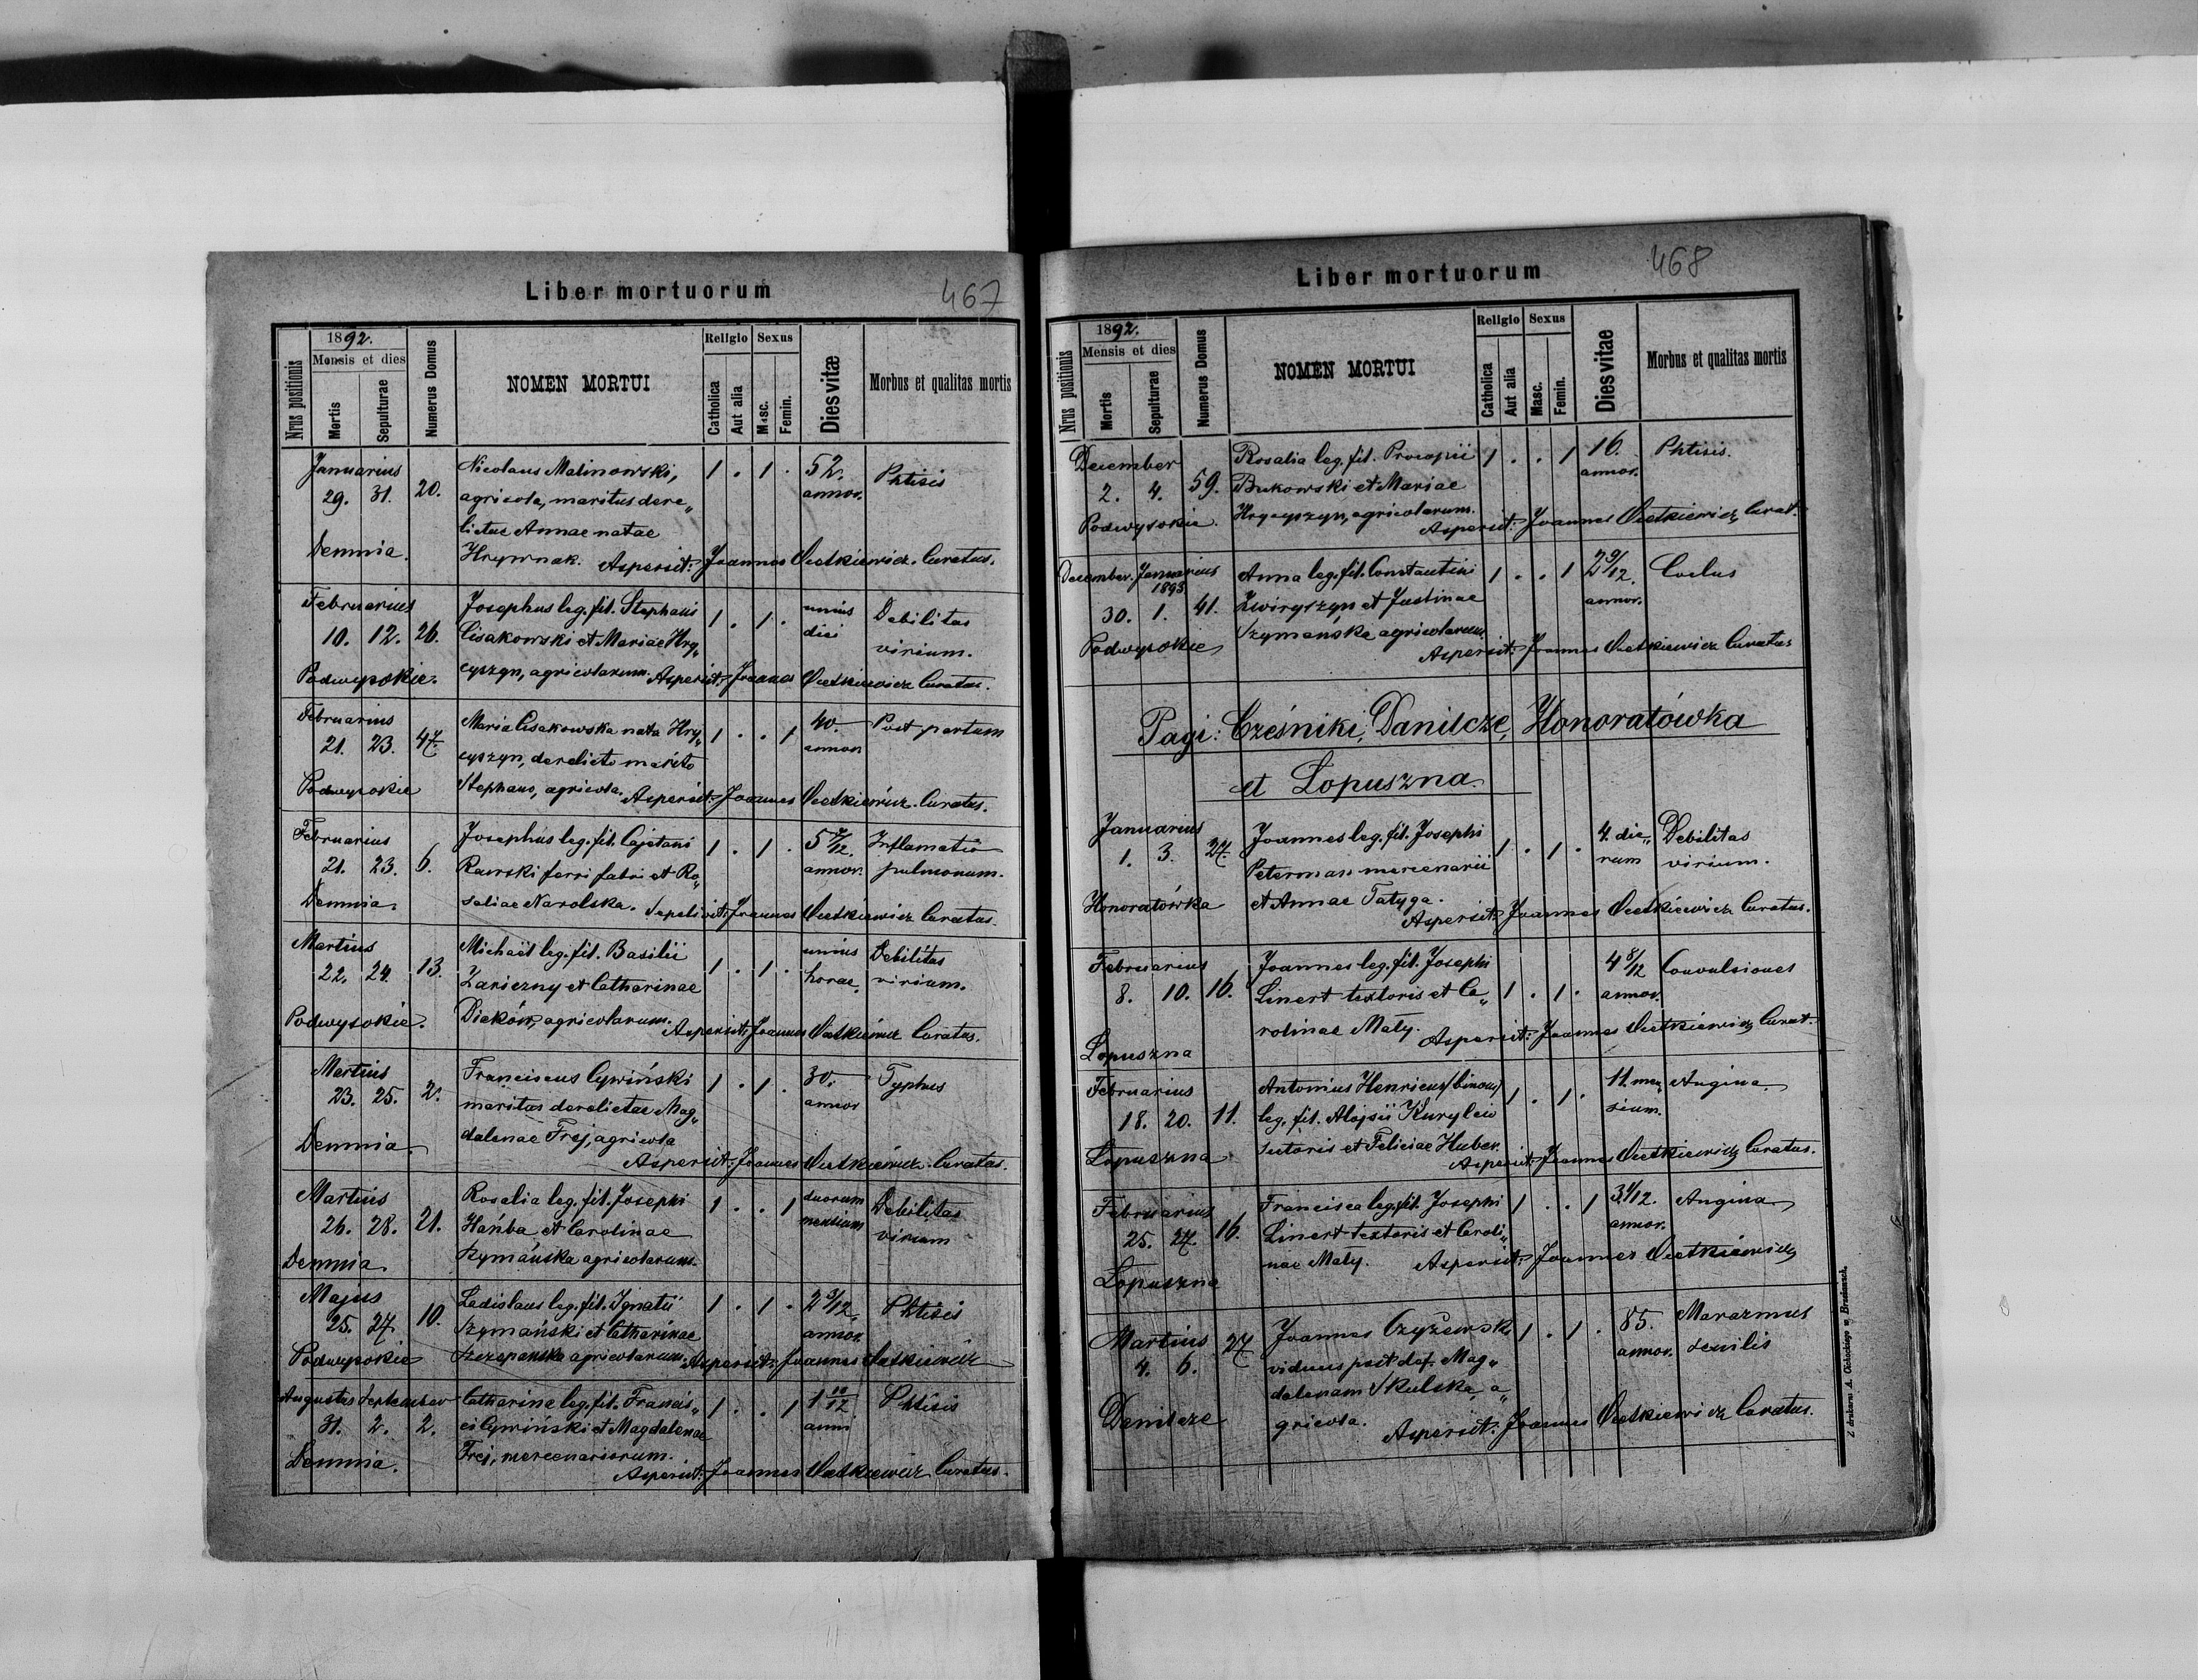 Liber mortuorum
467
Nrus positionis
1892.
Mensis et dies
Mortis
Sepulturae
Numerus Domus
NOMEN MORTUI
Religio
Catholica
Aut alia
Sexus
Masc.
Femin.
Dies vitæ
Morbus et qualitas mortis
Januarius Nicolaus Malinowski, 1 . 1 . 52. Phtisis
29. 31. 20. agricola, maritus dere„ annor.
lictus Annae natae
Demnia. Hrywnak. Aspersit: Joannes Uietkiewicz Curatus.
Februarius Josephus leg. fil. Stephani 1 . 1 . unius Debilitas
10. 12. 26. Cisakowski et Mariae Hry„ diei virium.
Podwysokie. cyszyn, agricolarum. Aspersit: Joannes Uietkiewicz Curatus.
Februarius Maria Cisakowska nata Hry„ 1 . . 1 40. Post partum
21. 23. 47. cyszyn, derelicto marito annor.
Podwysokie Stephano, agricola. Aspersit: Joannes Uietkiewicz Curatus.
Februarius Josephus leg. fil. Cajetani 1 . 1 . 5 7/12. Inflamatio
21. 23. 6. Rawski ferri fabri et Ro„ annor. pulmonum.
Demnia. saliae Narolska. Sepelivit: Joannes Uietkiewicz Curatus.
Martius Michaël leg. fil. Basilii 1 . 1 . unius Debilitas
22. 24. 13. Zariczny et Catharinae horae. virium.
Podwysokie. Dieków, agricolarum. Aspersit: Joannes Uietkiewicz Curatus.
Martius Franciscus Cywiński 1 . 1 . 30. Typhus
23. 25. 2. maritus derelictae Mag„ annor
Demnia. dalenae Frej, agricola
Aspersit: Joannes Uietkiewicz Curatus.
Martius Rosalia leg. fil. Josephi 1 . . 1 duorum Debilitas
26. 28. 21. Hańba et Carolinae mensium virium
Demnia. Szymańska agricolarum.
Majus Ladislaus leg. fil. Ignatii 1 . 1 . 2 3/12 Phtisis
25. 27. 10. Szymański et Catharinae annor.
Podwysokie Szczepańska agricolarum. Aspersit: Joannes Uietkiewicz
Augustus September Catharina leg. fil. Francis„ 1 . . 1 1 10/12 Phtisis
31. 2. 2. ci Cywiński et Magdalenae anni
Demnia. Frej, mercenariorum.
Aspersit: Joannes Uietkiewicz Curatus.
Liber mortuorum
468
Nrus positionis
1892.
Mensis et dies
Mortis
Sepulturae
Numerus Domus
NOMEN MORTUI
Religio
Catholica
Aut alia
Sexus
Masc.
Femin.
Dies vitae
Morbus et qualitas mortis
December Rosalia leg. fil. Procopii 1 . . 1 16. Phtisis.
2. 4. 59. Bukowski et Mariae annor.
Podwysokie. Hrycyszyn, agricolarum.
Aspersit: Joannes Uietkiewicz Curat.
December. Januarius Anna leg. fil. Constantini 1 . . 1 2 9/12. Coclus
1893
30. 1. 41. Zwiryszyn et Justinae annor.
Podwysokie Szymańska agricolarum.
Aspersit: Joannes Uietkiewicz Curatus
Pagi: Cześniki, Danilcze, Honoratówka
et Lopuszna.
Januarius Joannes leg. fil. Josephi 1 . 1 . 4. die„ Debilitas
1. 3. 27. Peterman mercenarii rum virium.
Honoratówka et Annae Tatyga.
Aspersit: Joannes Uietkiewicz Curatus.
Februarius Joannes leg. fil. Josephi 4 8/12 Convulsiones
8. 10. 16. Linert textoris et Ca„ 1 . 1 . annor.
rolinae Mały. Aspersit: Joannes Uietkiewicz Curat.
Lopuszna
Februarius Antonius Henricus (binom) 1 . 1 . 11. men„ Angina.
18. 20. 11. leg. fil. Alojsii Kurylew sium.
Lopuszna sutoris et Feliciae Huber.
Aspersit: Joannes Uietkiewicz Curatus.
Februarius Francisca leg. fil. Josephi 1 . . 1 3 1/12. Angina
25. 27. 16. Linert textoris et Caroli„ annor.
nae Mały. Aspersit: Joannes Uietkiewicz
Lopuszna
Martius 27 Joannes Czyżewski 1 . 1 . 85. Marazmus
4. 6. viduus post def. Mag„ annor. senilis
dalenam Skulska, a„
Danilcze gricola. Aspersit: Joannes Uietkiewicz Curatus.
Z drukarni A. Olchockiego w Brzeżanach.